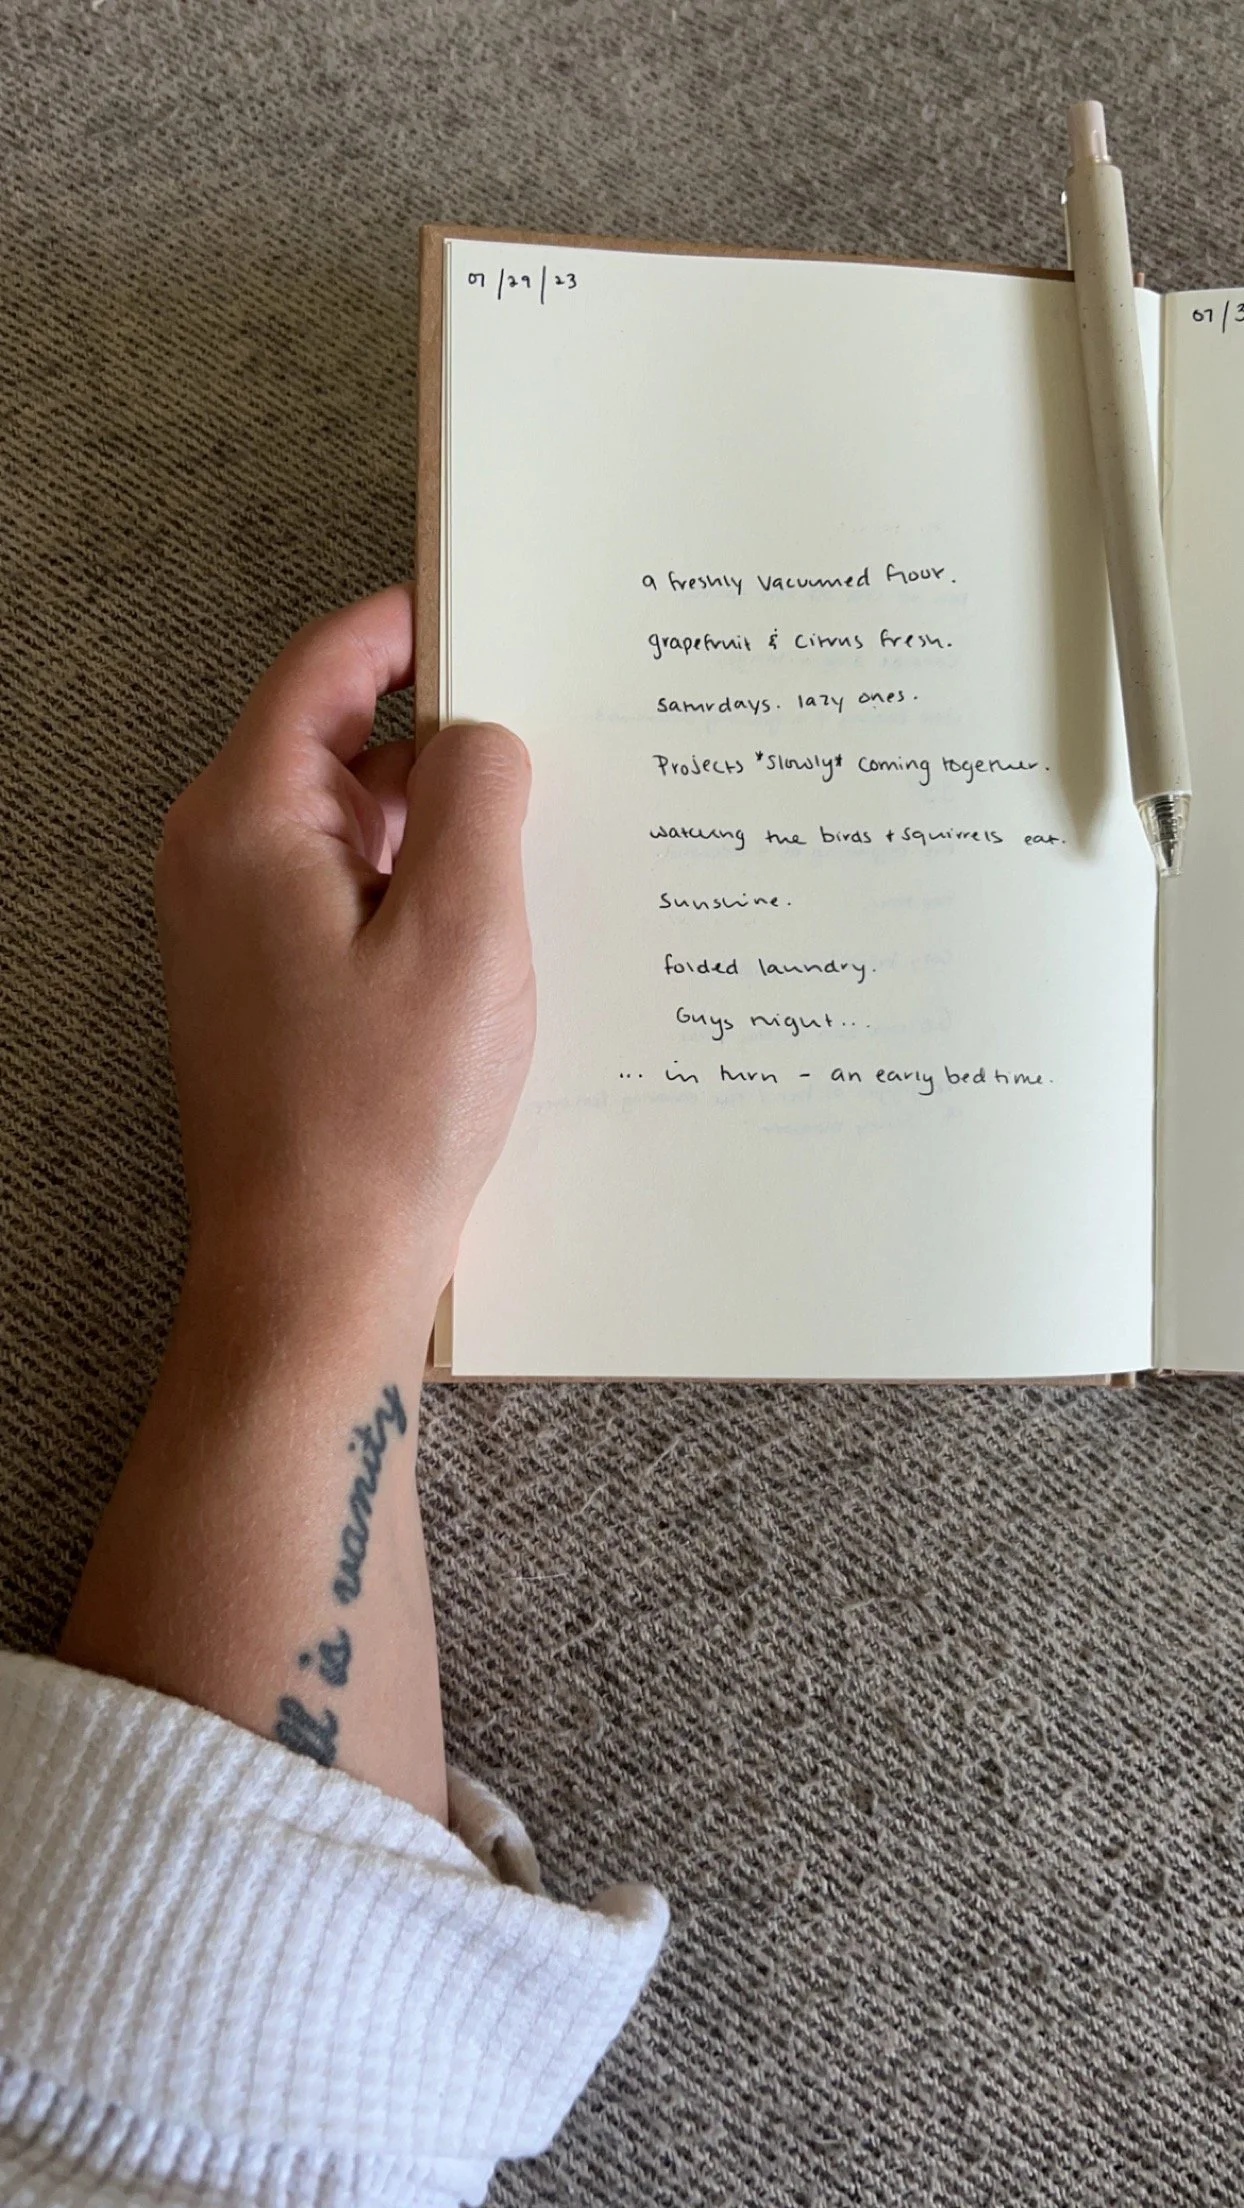 07/29/23
a freshly vacuumed floor.
grapefruit & citrus fresh.
saturdays. lazy ones.
Projects *slowly* coming together.
watching the birds + squirrels eat.
sunshine.
folded laundry.
Guys night...
... in turn - an early bedtime.
07/3
ll is vanity